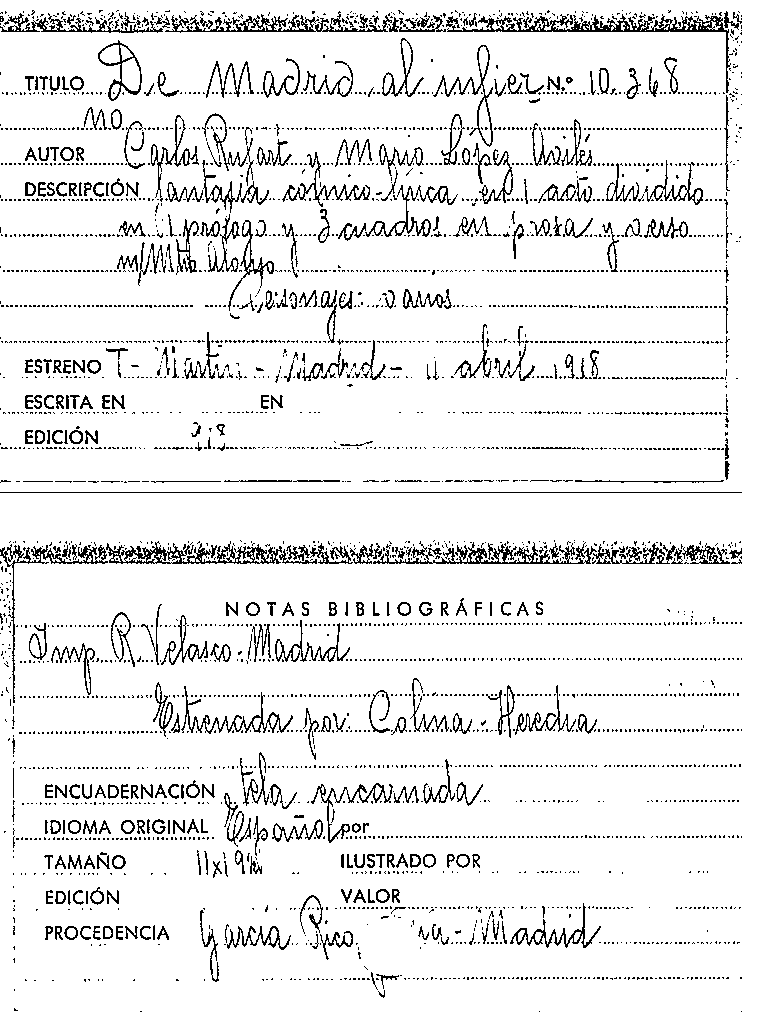 TITULO De Madrid al infier N.º 10.368
no
AUTOR Carlos Rufart y Mario López Avilés
DESCRIPCIÓN fantasía cómico-lírica en 1 acto dividido
en 1 prólogo y 3 cuadros en prosa y verso
m/Mtro
Personajes: varios
ESTRENO T- Martín - Madrid - 11 abril 1918
ESCRITA EN EN
EDICIÓN 918 —
NOTAS BIBLIOGRÁFICAS
Imp. R. Velasco - Madrid
Estrenada por: Colina - Heredia
ENCUADERNACIÓN tela encarnada
IDIOMA ORIGINAL Español por
TAMAÑO 11x19 ILUSTRADO POR
EDICIÓN VALOR
PROCEDENCIA García Rico, - Madrid